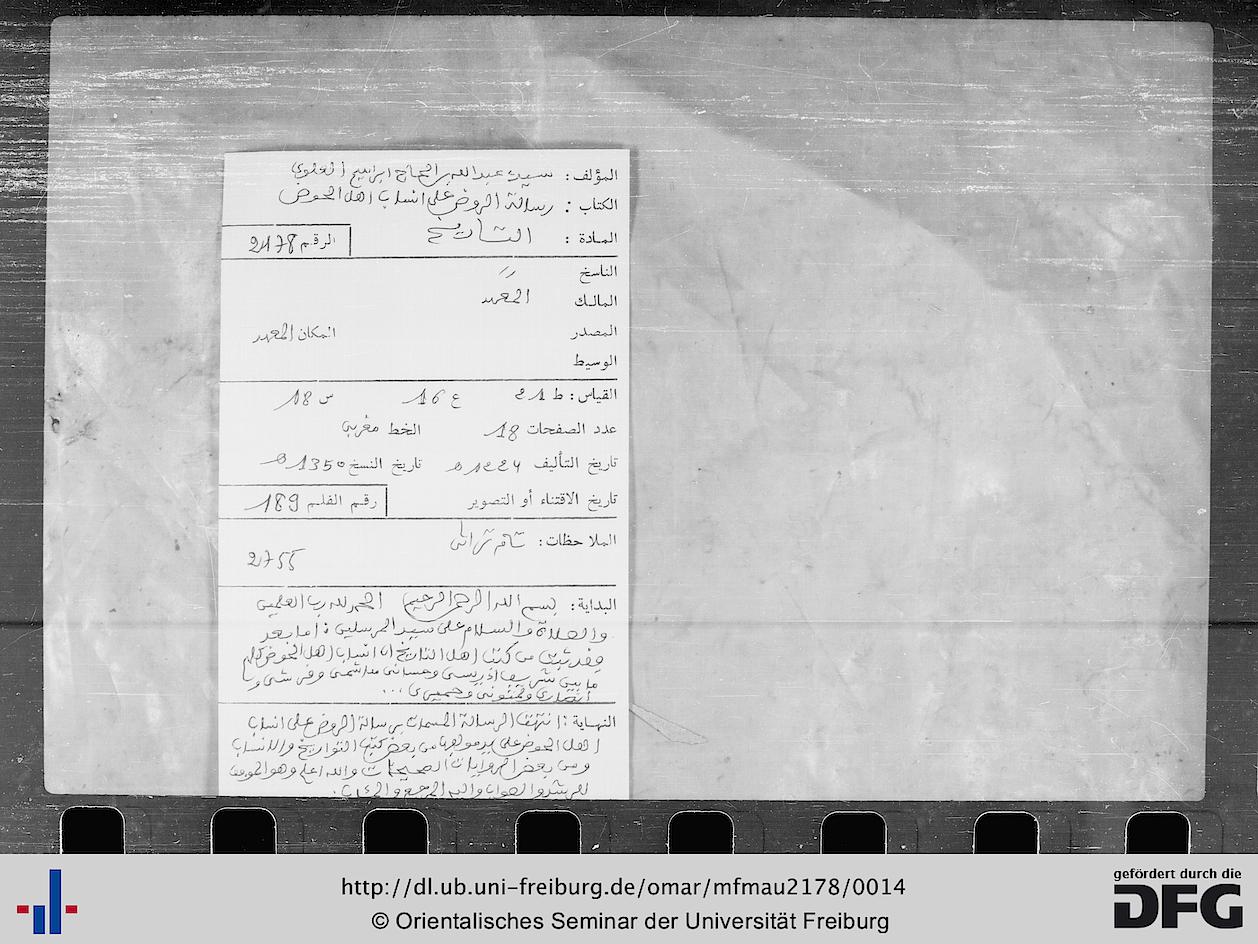 المؤلف: سيدي عبد الله بن الحاج ابراهيم العلوي
الكتاب : رسالة الروض على انساب اهل الحوض
المادة : التاريخ
الرقم 2178
الناسخ //
المالك المعهد
المصدر المكان المعهد
الوسيط
القياس: ط 21 ع 16 س 18
عدد الصفحات 18 الخط مغربي
تاريخ التأليف 1224 ه تاريخ النسخ 1350 ه
تاريخ الاقتناء أو التصوير رقم الفلم 189
الملاحظات:
2755
البداية: بسم الله الرحمن الرحيم الحمد لله رب العلمين
والصلاة والسلام على سيد المرسلين: اما بعد
فقد ثبت من كتب اهل التاريخ ان انساب اهل الحوض كلهم
ما بين شريف ادريسي وحساني هاشمي وقرشي و
أنصاري ولمتوني وحميري ...
النهاية: انتهت الرسالة المسمات برسالة الروض على انساب
اهل الحوض على يد من بعض كتب التواريخ والانساب
ومن بعض الروايات الصحيحات والله اعلم وهو الموفق
للصواب واليه المرجع والمآب.
http://dl.ub.uni-freiburg.de/omar/mfmau2178/0014
© Orientalisches Seminar der Universität Freiburg
gefördert durch die
DFG